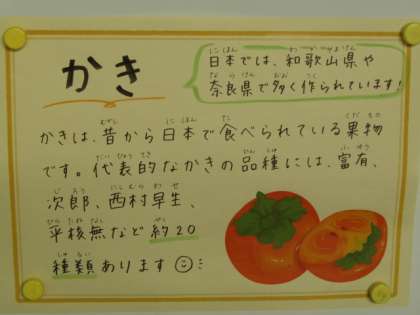 かき
日本では、和歌山県や
奈良県で多く作られています!
かきは、昔から日本で食べられている果物
です。代表的なかきの品種には、富有、
次郎、西村早生、
平核無など約20
種類あります